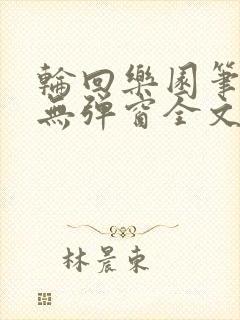 輪回樂園筆
無彈窗全文
林晨東